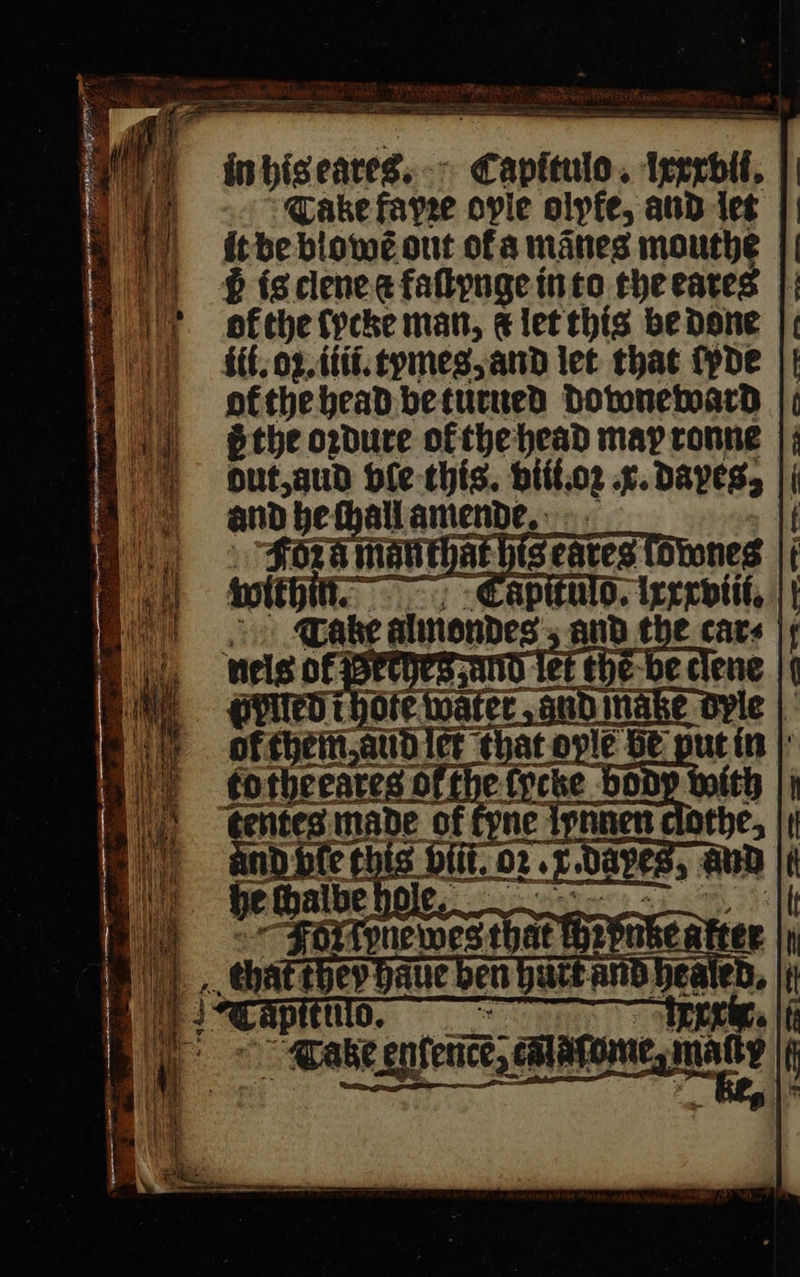 in his eares. Capitulo. lxxxvii.
Take fayre oyle olyfe, and let
it be blowē out of a mānes mouthe
þͭ is clene ⁊ fastynge in to the eares
of the sycke man, ⁊ let this be done
iii. or. iiii. tymes, and let that syde
of the head be turned downeward
þͭ the ordure of the head may ronne
out, aud vse this. viii. or .x. dayes,
and he shall amende.
For a man that his eares sownes
within. Capitulo. lxxxviii.
Take almondes, and the car-
nels of peches, and let thē be clene
pylled ī hote water, and make oyle
of them, aud let that oyle be put in
to the eares of the sycke body with
tentes made of fyne lynnen clothe,
and vse this viii. or .x. dayes, and
he shalbe hole.
For synewes that shrynke after
that they haue ben hurt and healed.
Capitulo. lxxxix.
Take ensence, calafome, masty
ke,